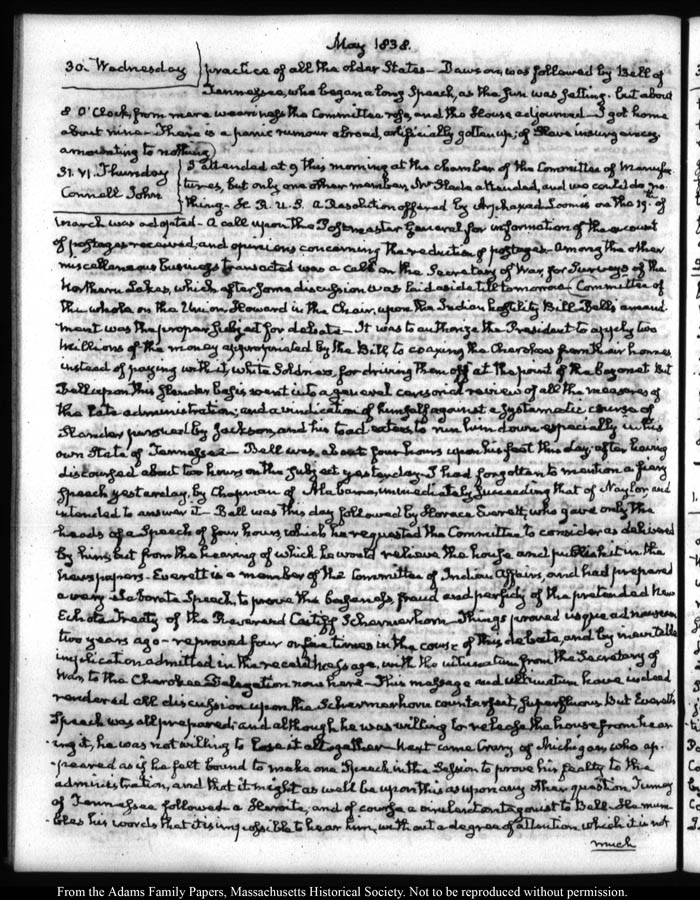 May 1838.
30. Wednesday
practice of all the older States— Dawson, was followed by Bell of
Tennessee, who began a long Speech, as the Sun was setting. but about
8 O'Clock, from mere weariness the Committee rose, and the House adjourned— I got home
about nine— There is a panic rumour abroad, artificially gotten up, of Slave insurgency
amounting to nothing
31. VI. Thursday
Connell John
I attended at 9 this morning at the chamber of the Committee of Manufac
tures, but only one other member, Mr Slade attended, and we could do no
thing— H. R. U. S. a Resolution offered by Arphaxed Loomis on the 19th of
March was adopted— A call upon the Postmaster General for information of the amount
of postages received, and opinions concerning the reduction of postages— Among the other
miscellaneous business transacted was a call on the Secretary of War, for Surveys of the
Northern Lakes, which after some discussion was laid aside till tomorrow— Committee of
the whole on the Union, Howard in the Chair, upon the Indian hostility Bill— Bell's amend
ment was the proper subject for debate— It was to authorize the President to apply two
Millions of the money appropriated by the Bill, to coaxing the Cherokees from their homes
instead of paying with it, white Soldiers, for driving them off at the point of the bayonet But
Bell upon this slender basis went into a general censorial review of all the measures of
the late administration; and a vindication of himself against a systematic course of
Slander pursued by Jackson, and his toad eaters, to run him down especially in his
own State of Tennessee— Bell was about four hours upon his feet this day; after having
discoursed about two hours on the subject yesterday— I had forgotten to mention a fiery
Speech yesterday, by Chapman of Alabama, immediately succeeding that of Naylor and
intended to answer it— Bell was this day followed by Horace Everett, who gave only the
heads of a Speech of four hours which he requested the Committee to consider as delivered
by him; but from the hearing of which he would relieve the house and publish it in the
newspapers— Everett is a member of the Committee of Indian Affairs, and had prepared
a very elaborate Speech, to prove the baseness, fraud and perfidy of the pretended New
Echota Treaty of the Reverend Caitiff Schermerhorn— Things proved usque ad nauseam
two years ago— reproved four or five times in the course of this debate, and by inevitable
implication admitted in the recent message, with the ultimatum from the Secretary of
War, to the Cherokee Delegation now here— This message and ultimatum have indeed
rendered all discussion upon the Schermerhorn counterfeit, superfluous But Everett's
Speech was all prepared; and although he was willing to release the house from hear
ing it, he was not willing to lose it altogether— Next came Crary of Michigan who ap
peared as if he felt bound to make one Speech in the Session to prove his fealty to the
administration, and that it might as well be upon this as upon any other question, Turney
of Tennessee followed— a Heroite, and of course a virulent antagonist to Bell— He mum
bles his words that it is impossible to hear him, without a degree of attention which it is not
much
From the Adams Family Papers, Massachusetts Historical Society. Not to be reproduced without permission.